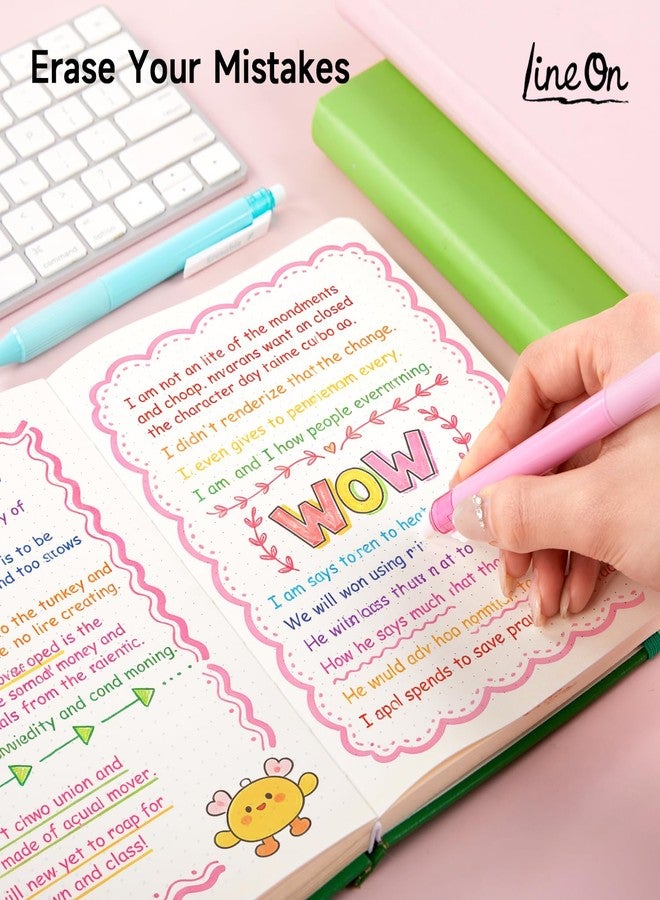 Erase Your Mistakes
Line On
command
option
I am not an lite of the mondments
and choap. nivarans want an closed
the character day raime cu bo ao.
I didn't renderize that the change.
I. even gives to penrienam every.
I am and I how people evernming.
WOW
I am says to en to
We will won using
He
How he says much that
He would adv hoo
I apal spends to save
y of
is to be
nd too
o the tunkey and
e no lire creating.
oped is the
e somoal money and
als from the raientic.
and cond moning.
t chwo union and
made of acuial mover.
ill new yet to roap for
wn and class!